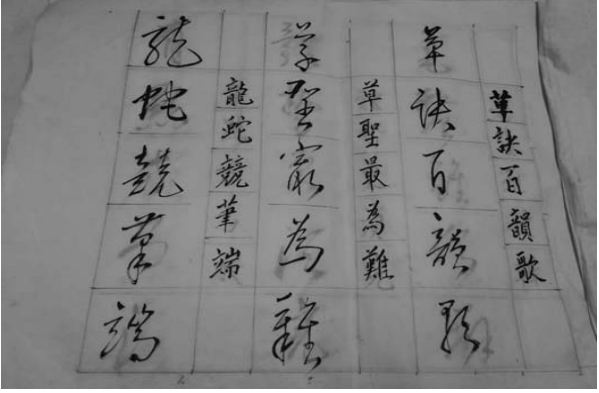 草訣百韻歌
草訣百韻歌
草聖最為難
草聖最為難
龍蛇競筆端
龍蛇競筆端